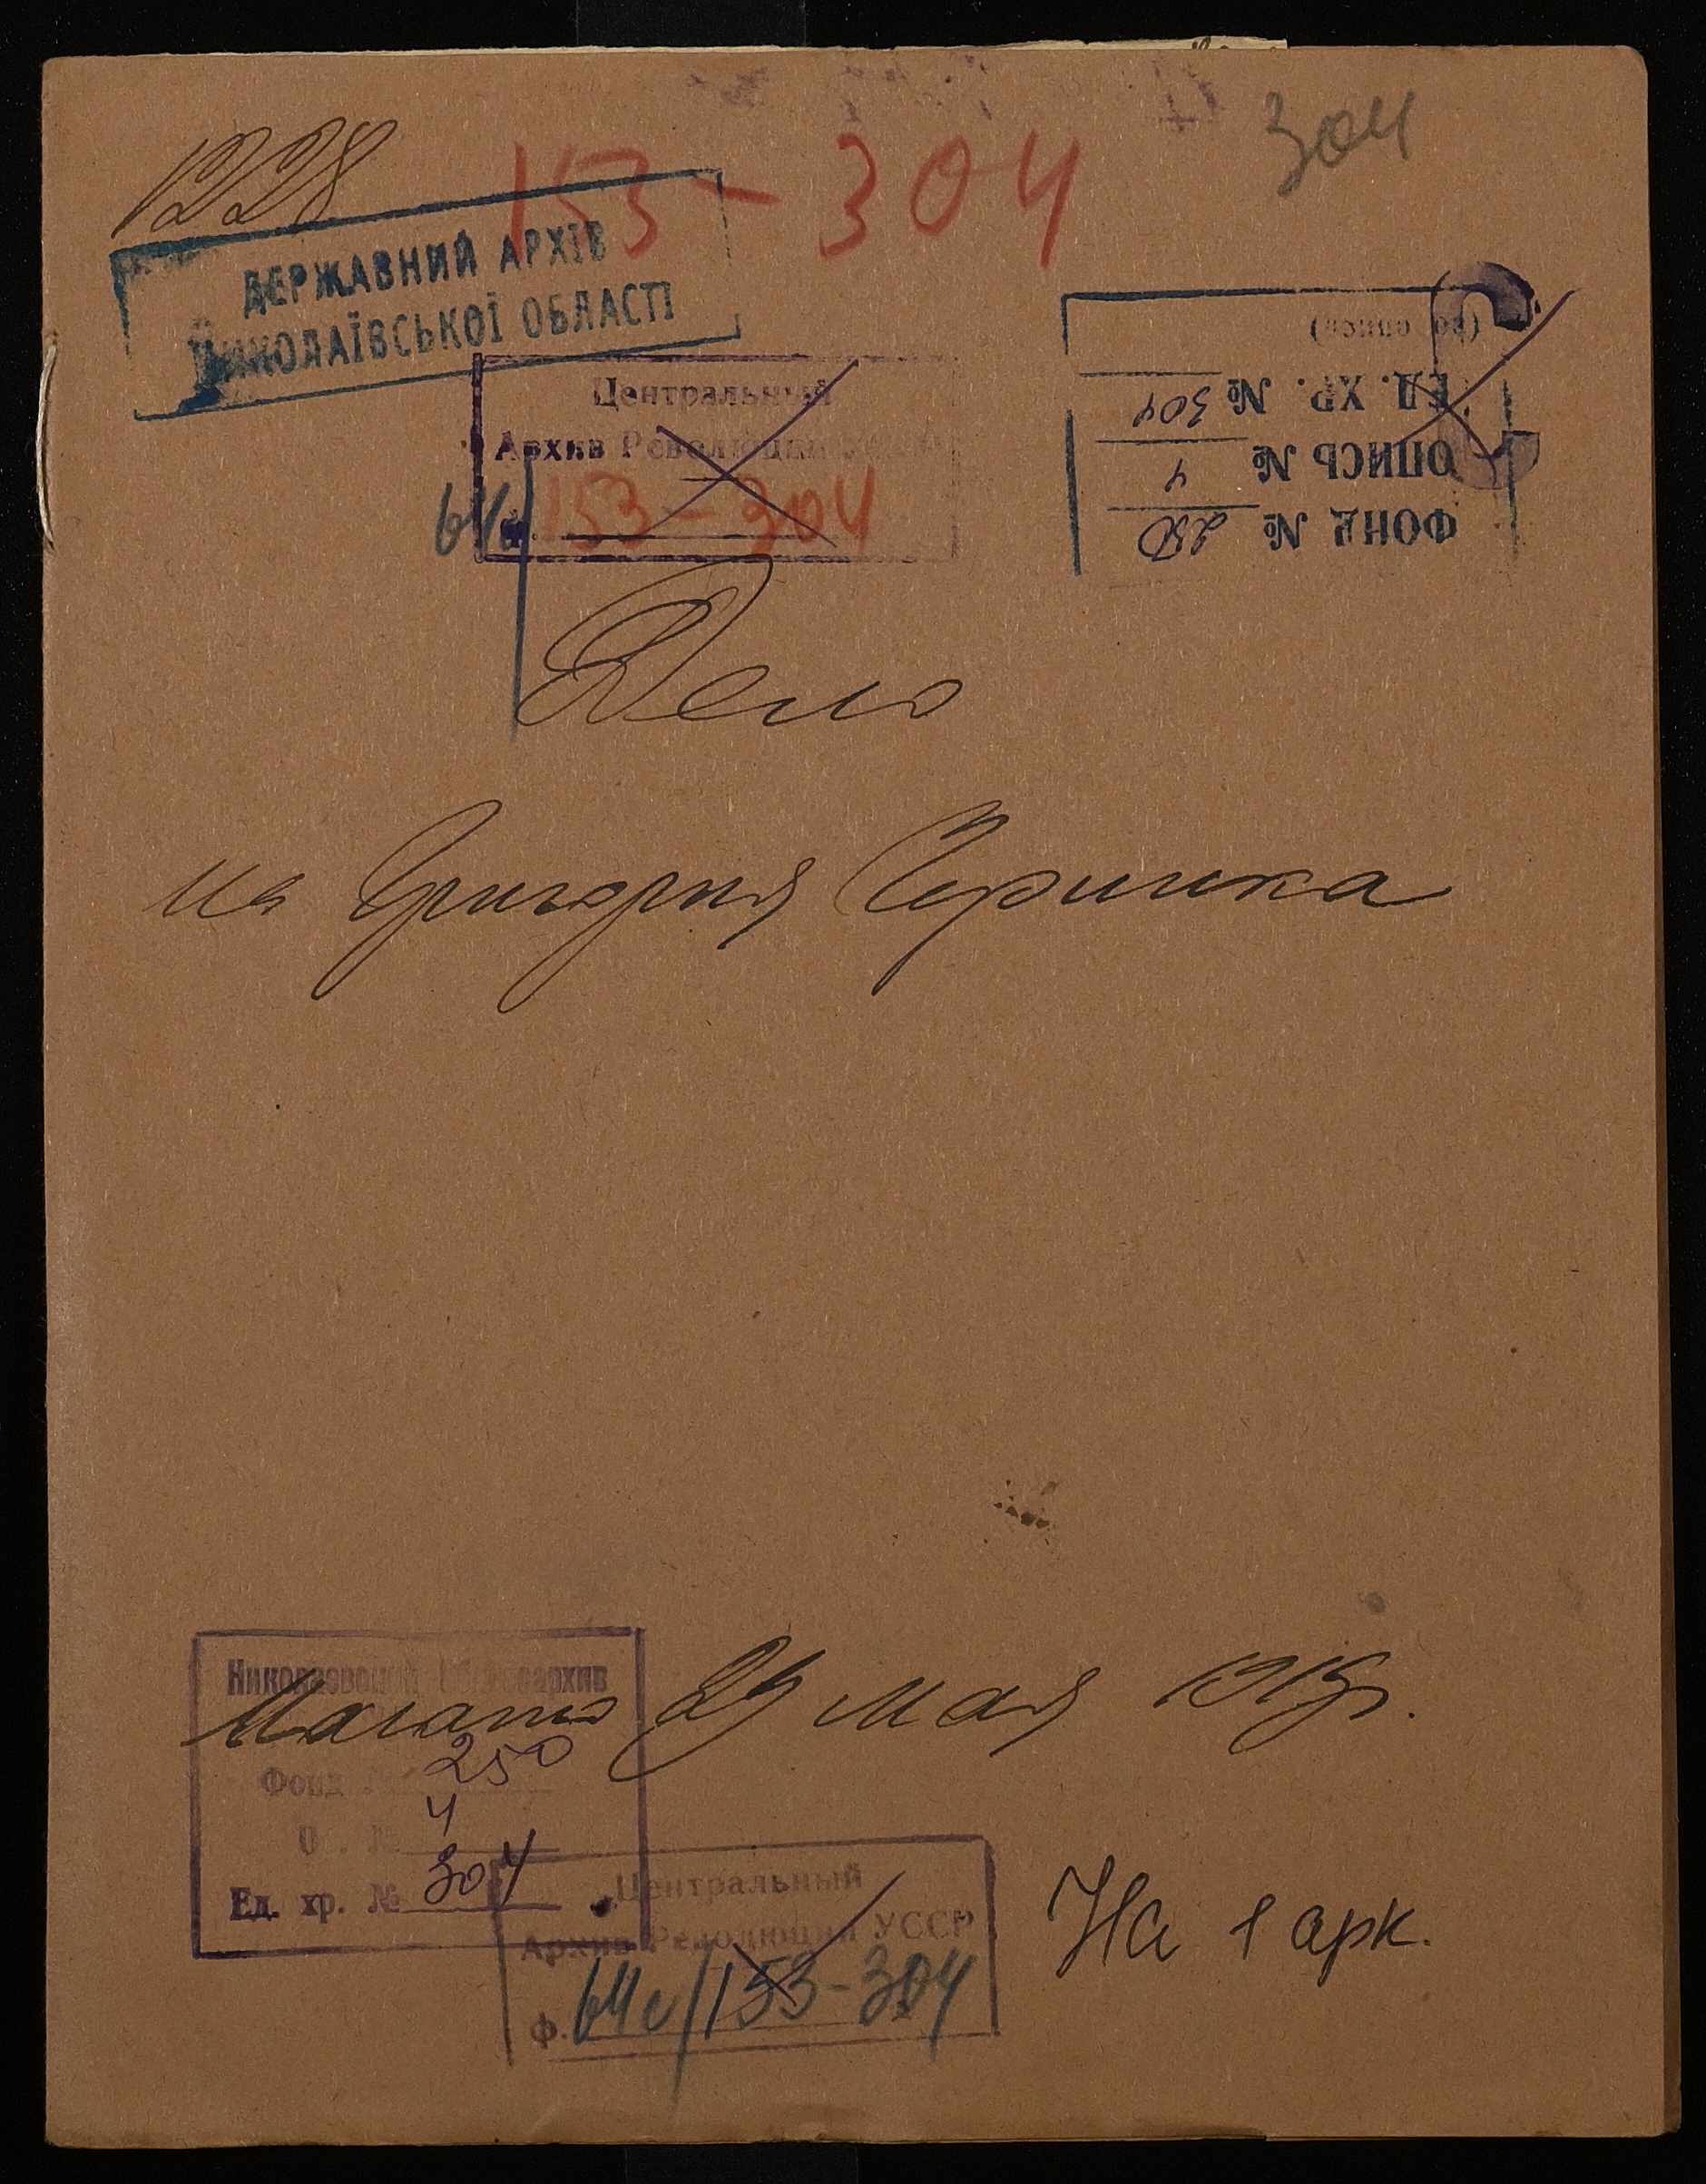 1228
153-304
304
ДЕРЖАВНИЙ АРХІВ
МИКОЛАЇВСЬКОЇ ОБЛАСТІ
Центральный
Архив Революции
153-304
ФОНД № 250
ОПИСЬ № 4
ЕД. ХР. № 304
Дело
на Григория
Николаевский Облгосархив
Начато 29 мая 1919г.
Фонд № 250
О . № 4
Ед. хр. № 304
Центральный
Архив Революции УССР
ф. 64с/153-304
На 1 арк.